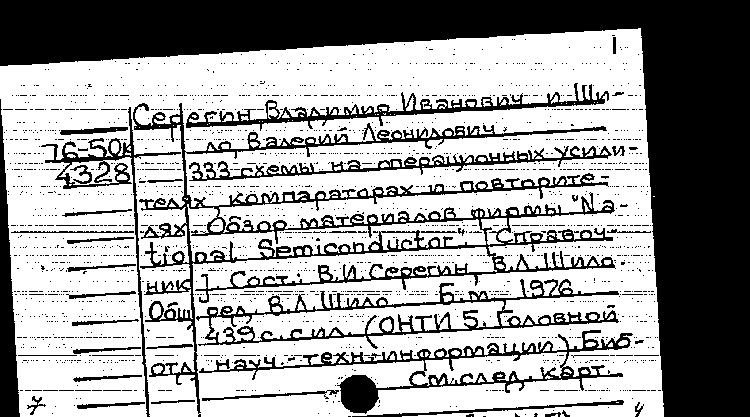 1
Серегин, Владимир Иванович и Ши-
76-50к ло, Валерий Леонидович.
4328 333 схемы на операционных усили-
телях, компараторах и повторите-
лях. Обзор материалов фирмы "Na-
tional Semiconductor". [Справоч-
ник]. Сост.: В.И.Серегин, В.Л.Шило.
Общ. ред. В.Л.Шило. Б.м., 1976.
439 с. с ил. (ОНТИ 5. Головной
отд. науч.-техн. информации). Биб-
См. след. карт.